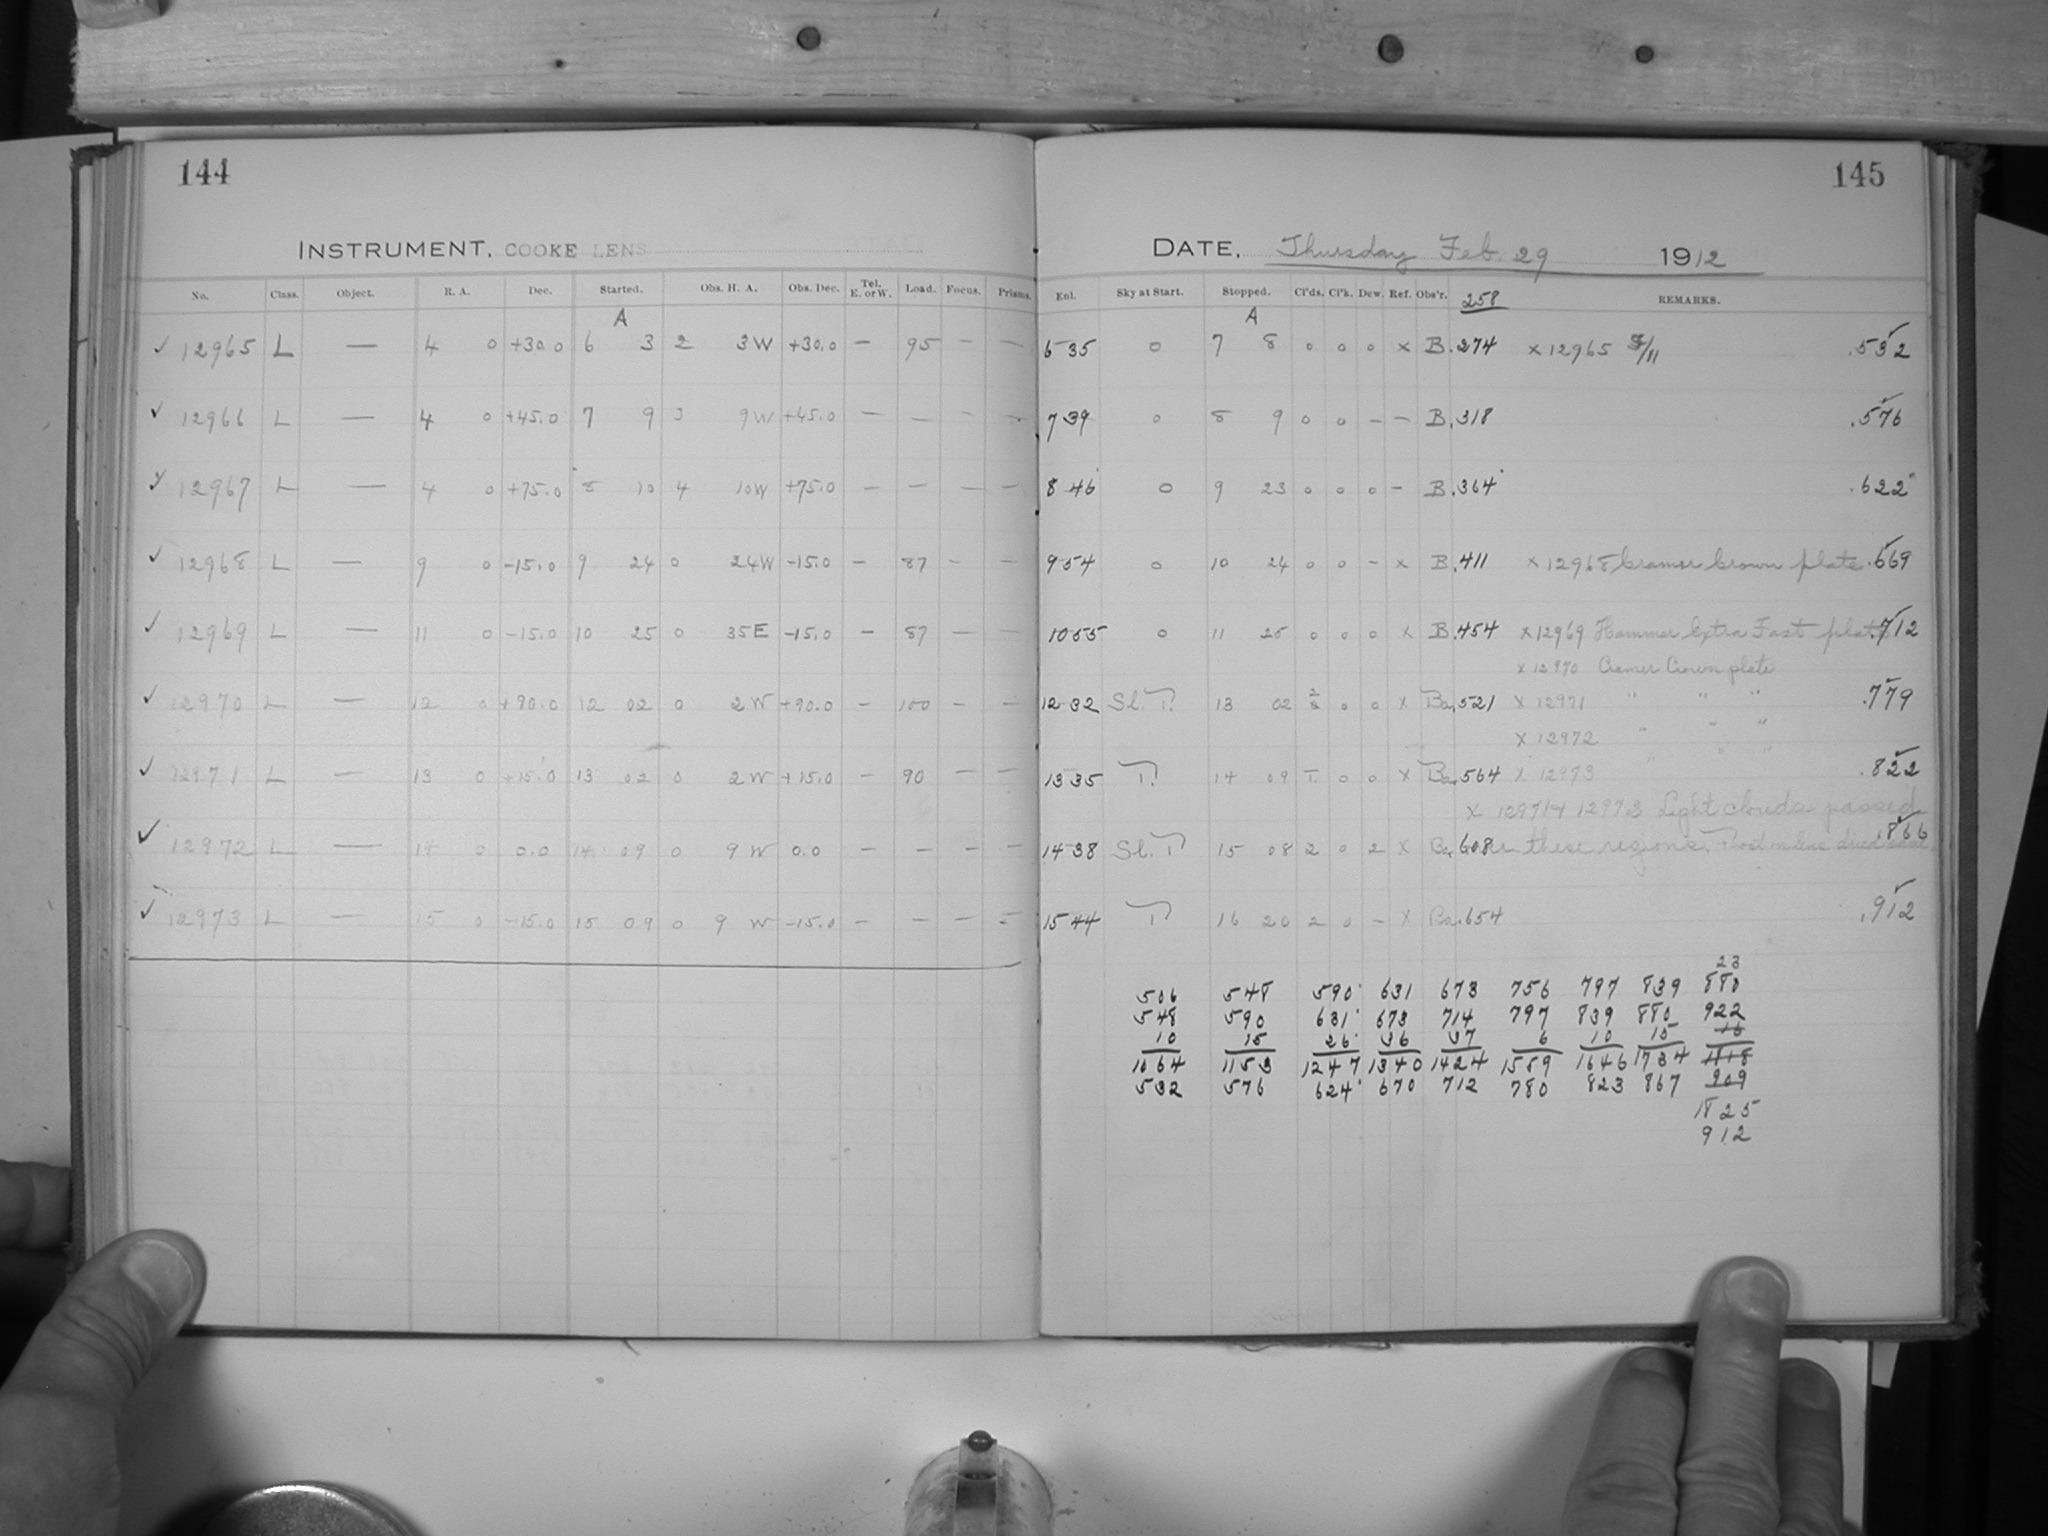 144
INSTRUMENT. COOKE LENS
No. Class. Object. R. A. Dec. Started. Obs. H. A. Obs. Dec. Tel. E. or W. Load. Focus. Prisms.
A
✓ 12965 L — 4 0 +30.0 6 3 2 3W +30.0 — 95 — —
✓ 12966 L — 4 0 +45.0 7 9 3 9W +45.0 — — — —
✓ 12967 L — 4 0 +75.0 8 10 4 10W +75.0 — — — —
✓ 12968 L — 9 0 -15.0 9 24 0 24W -15.0 — 87 — —
✓ 12969 L — 11 0 -15.0 10 25 0 35E -15.0 — 87 — —
✓ 12970 L — 12 0 +90.0 12 02 0 2W +90.0 — 100 — —
✓ 12971 L — 13 0 +15.0 13 02 0 2W +15.0 — 90 — —
✓ 12972 L — 14 0 0.0 14 09 0 9W 0.0 — — — —
✓ 12973 L — 15 0 -15.0 15 09 0 9 W -15.0 — — — —
145
DATE. Thursday Feb. 29 1912
Enl. Sky at Start. Stopped. Cl'ds. Cl'k. Dew. Ref. Obs'r. 258 REMARKS.
A
6 35 0 7 8 0 0 0 x B .274 x 12965 /11 .532
7 39 0 8 9 0 0 — — B .318 .576
8 46 0 9 23 0 0 0 — B .364 .622
9 54 0 10 24 0 0 — x B .411 x 12968 Cramer Crown plate .669
10 55 0 11 25 0 0 0 x B .454 x 12969 Hammer Extra Fast plate .712
x 12970 Cramer Crown plate
12 32 Sl. T. 13 02 2 0 0 x Ba .521 x 12971 " " " .779
x 12972 " " "
13 35 T. 14 09 T. 0 0 x Ba .564 x 12973 " " " .822
x 12971 + 12973 Light clouds passed
14 38 Sl. T. 15 08 2 0 2 x Ba .608 these regions. .866
15 44 T. 16 20 2 0 — x Ba .654 .912
23
506 548 590 631 673 756 797 839 880
548 590 631 673 714 797 839 880 922
10 15 26 36 37 6 10 15 16
1064 1153 1247 1340 1424 1559 1646 1734 1818
532 576 624 670 712 780 823 867 909
1825
912